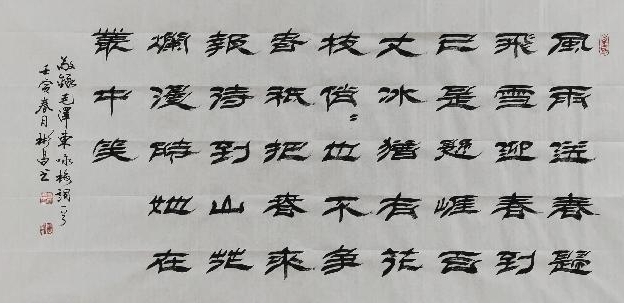 風雨送春歸
飛雪迎春到
已是懸崖百
丈冰猶有花
枝俏〻也不爭
春祇把春來
報待到山花
爛漫時她在
叢中笑
敬錄毛澤東咏梅詞一首
壬寅春月彬昌书